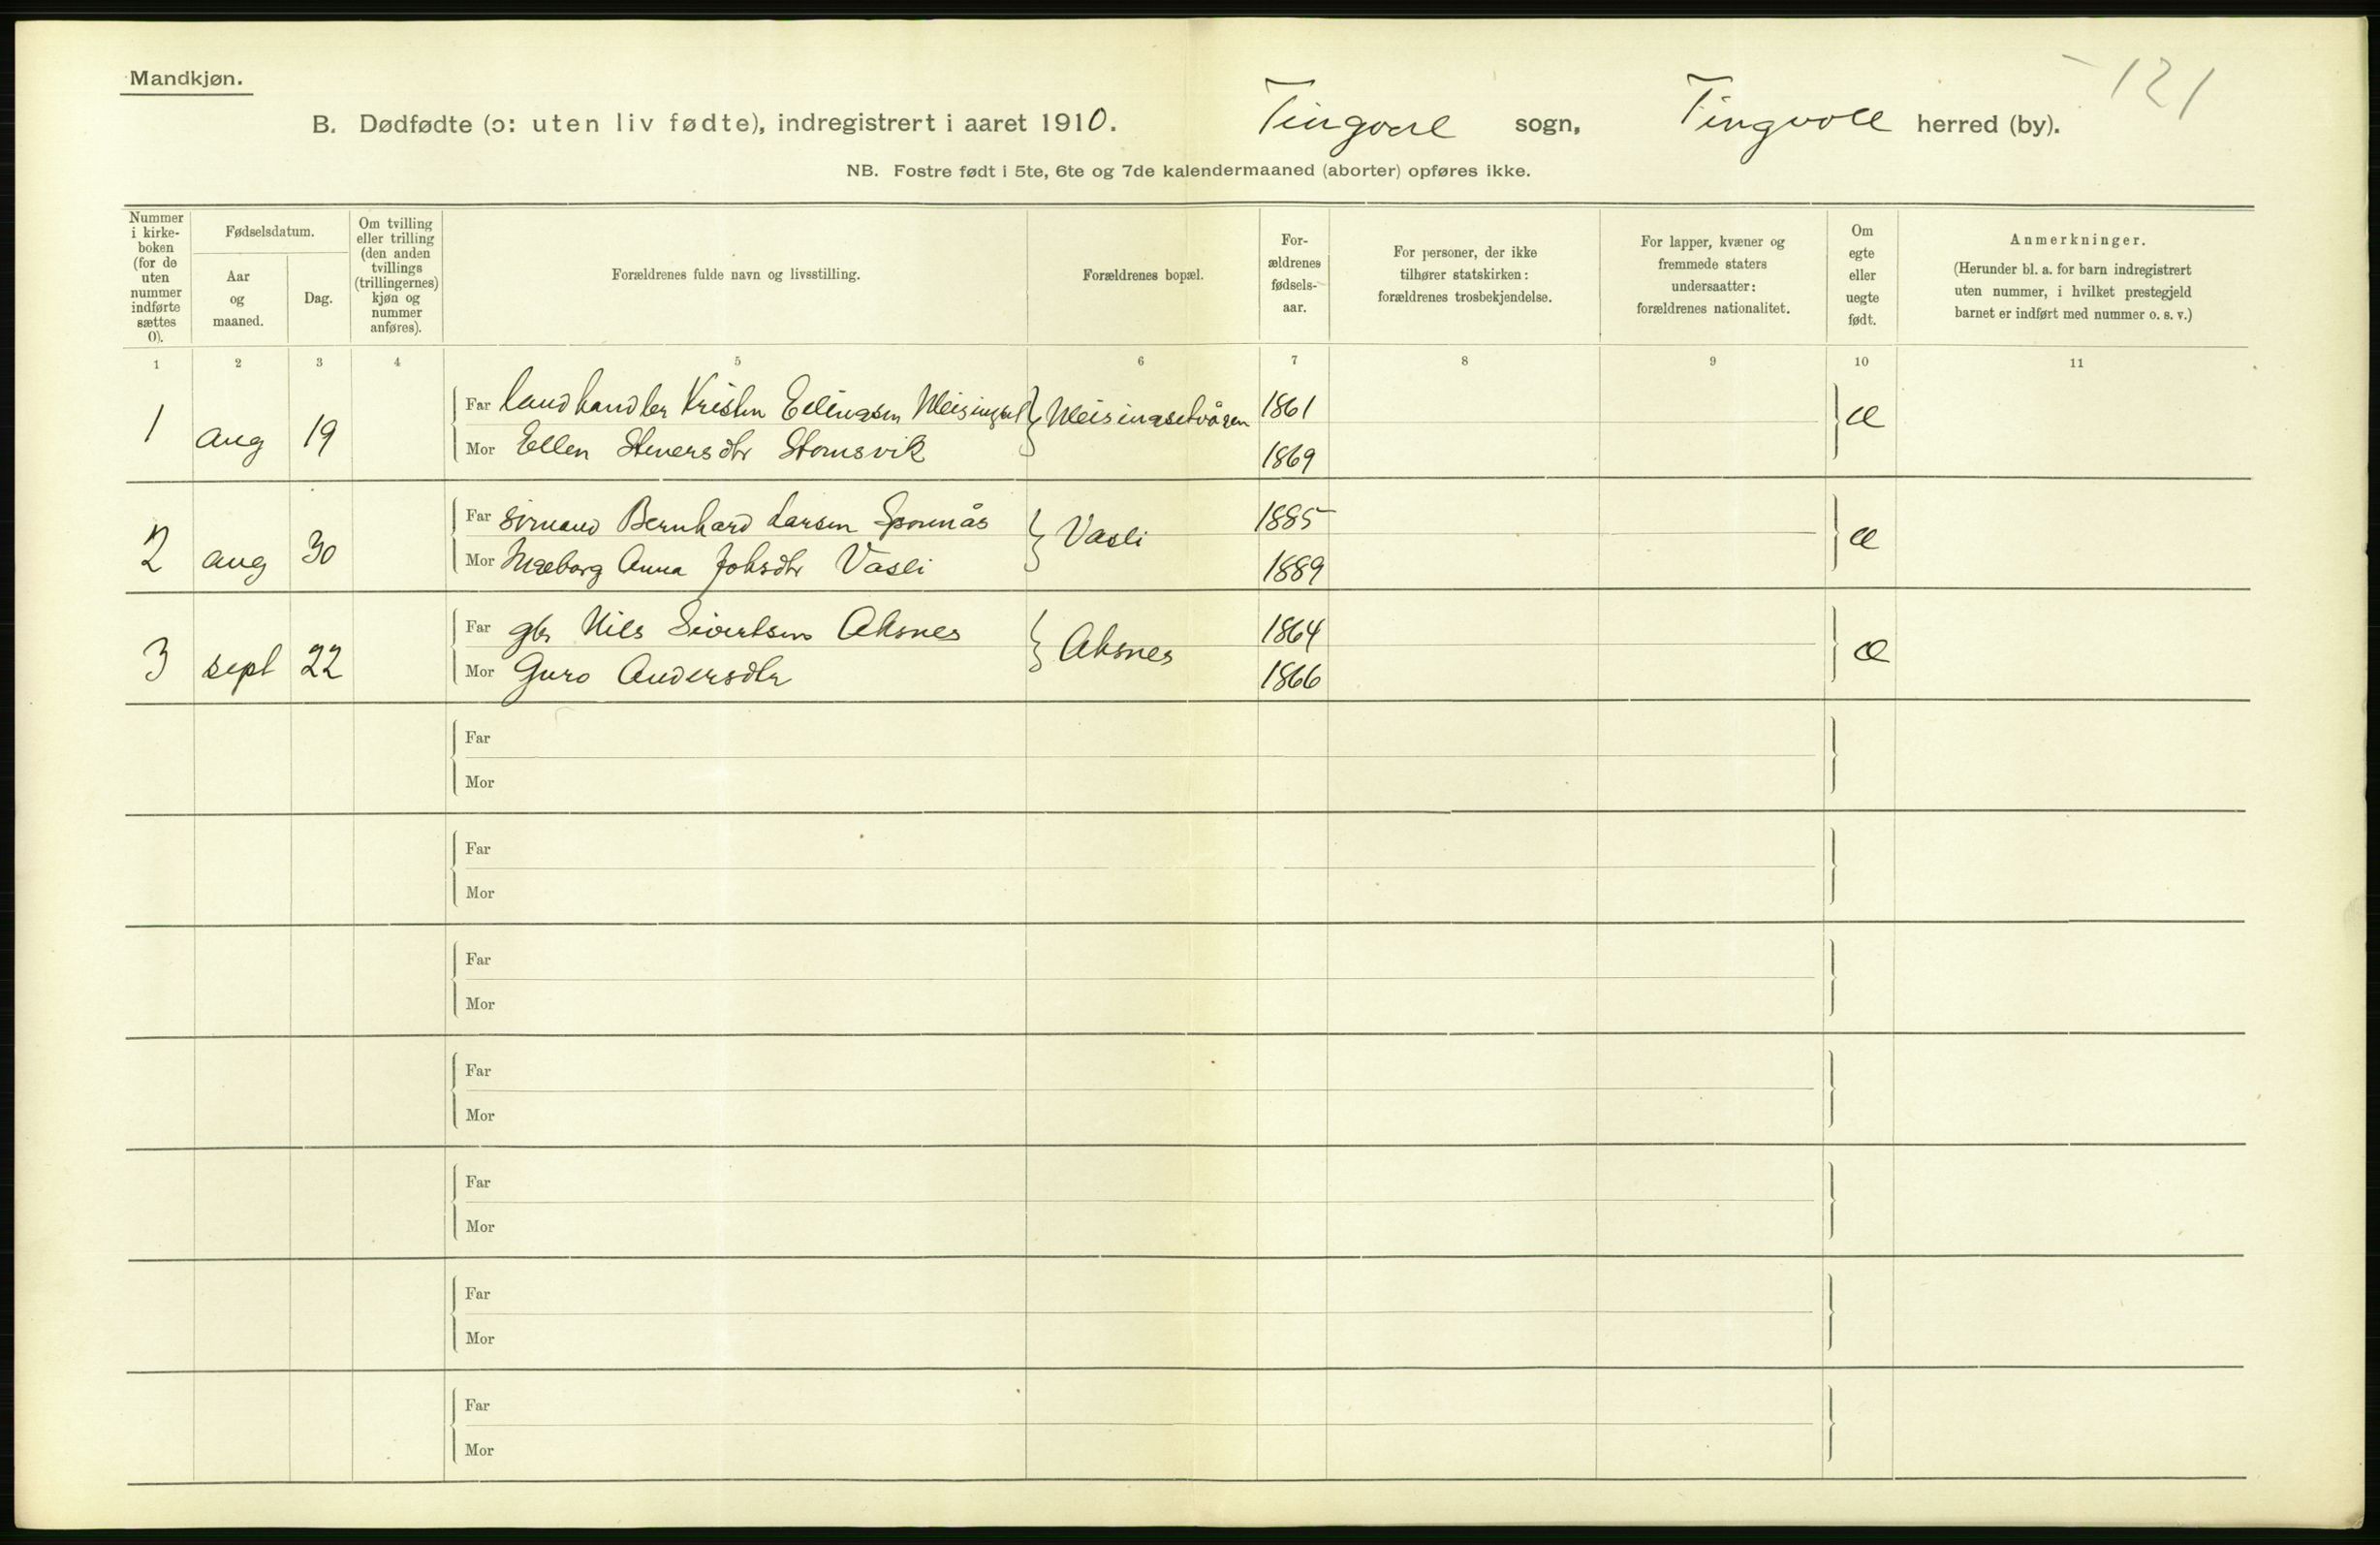 Mandkjøn.
121
B. Dødfødte (ɔ: uten liv fødte), indregistrert i aaret 1910. Tingvoll sogn, Tingvoll herred (by).
NB. Fostre født i 5te, 6te og 7de kalendermaaned (aborter) opføres ikke.
Nummer i kirke-boken (for de uten nummer indførte sættes 0).
Fødselsdatum.
Aar og maaned.
Dag.
Om tvilling eller trilling (den anden tvillings (trillingernes) kjøn og nummer anføres).
Forældrenes fulde navn og livsstilling.
Forældrenes bopæl.
For-ældrenes fødsels-aar.
For personer, der ikke tilhører statskirken: forældrenes trosbekjendelse.
For lapper, kvæner og fremmede staters undersaatter: forældrenes nationalitet.
Om egte eller uegte født.
Anmerkninger.
(Herunder bl. a. for barn indregistrert uten nummer, i hvilket prestegjeld barnet er indført med nummer o. s. v.)
1 2 3 4 5 6 7 8 9 10 11
1 aug 19 Far landhandler Kristen Ellingsen Meisingset Meisingsetvågen 1861 æ
Mor Ellen Steversdtr 1869
2 aug 30 Far Bernhard Larsen Vasli 1885 æ
Mor Ingeborg Anna Johsdtr Vasli 1889
3 sept 22 Far gbr Nils Sivertsen Aksnes Aksnes 1864 æ
Mor Guro Andersdtr 1866
Far
Mor
Far
Mor
Far
Mor
Far
Mor
Far
Mor
Far
Mor
Far
Mor